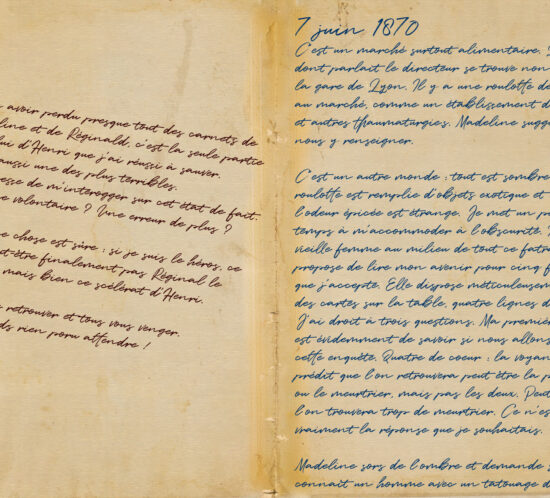 avoir perdu presque tout des carnets de
line et de Réginald, c'est la seule partie
lui d'Henri que j'ai réussi à sauver.
aussi une des plus terribles.
esse de m'interoger sur cet état de fait.
re volontaire ? Une erreur de plus ?
e chose est sûre : si je suis le héros, ce
t-être finalement pas Réginal le
mais bien ce scélérat d'Henri.
retrouver et tous vous venger.
ds rien poru attendre !
7 juin 1870
C'est un marché surtout alimentaire.
dont parlait le directeur se trouve non
la gare de Lyon. Il y a une roulotte de
au marché, comme un établissement d
et autres thaumaturgies. Madeline sugg
nous y renseigner.
C'est un autre monde : tout est sombre
roulotte est remplie d'objets exotique et
l'odeur épicée est étrange. Je met un p
temps à m'accommoder à l'obscurité.
vieille femme au milieu de tout ce fatra
propose de lire mon avenir pour cinq f
que j'accepte. Elle dispose méticuleusem
des cartes sur la table, quatre lignes d
J'ai droit à trois questions. Ma premiè
est évidemment de savoir si nous allons
cette enquête. Quatre de coeur : la voyan
prédit que l'on retrouvera peut être la p
ou le meurtrier, mais pas les deux. Peut
l'on trouvera trop de meurtrier. Ce n'es
vraiment la réponse que je souhaitais.
Madeline sors de l'ombre et demande s
connait un homme avec un tatouage d